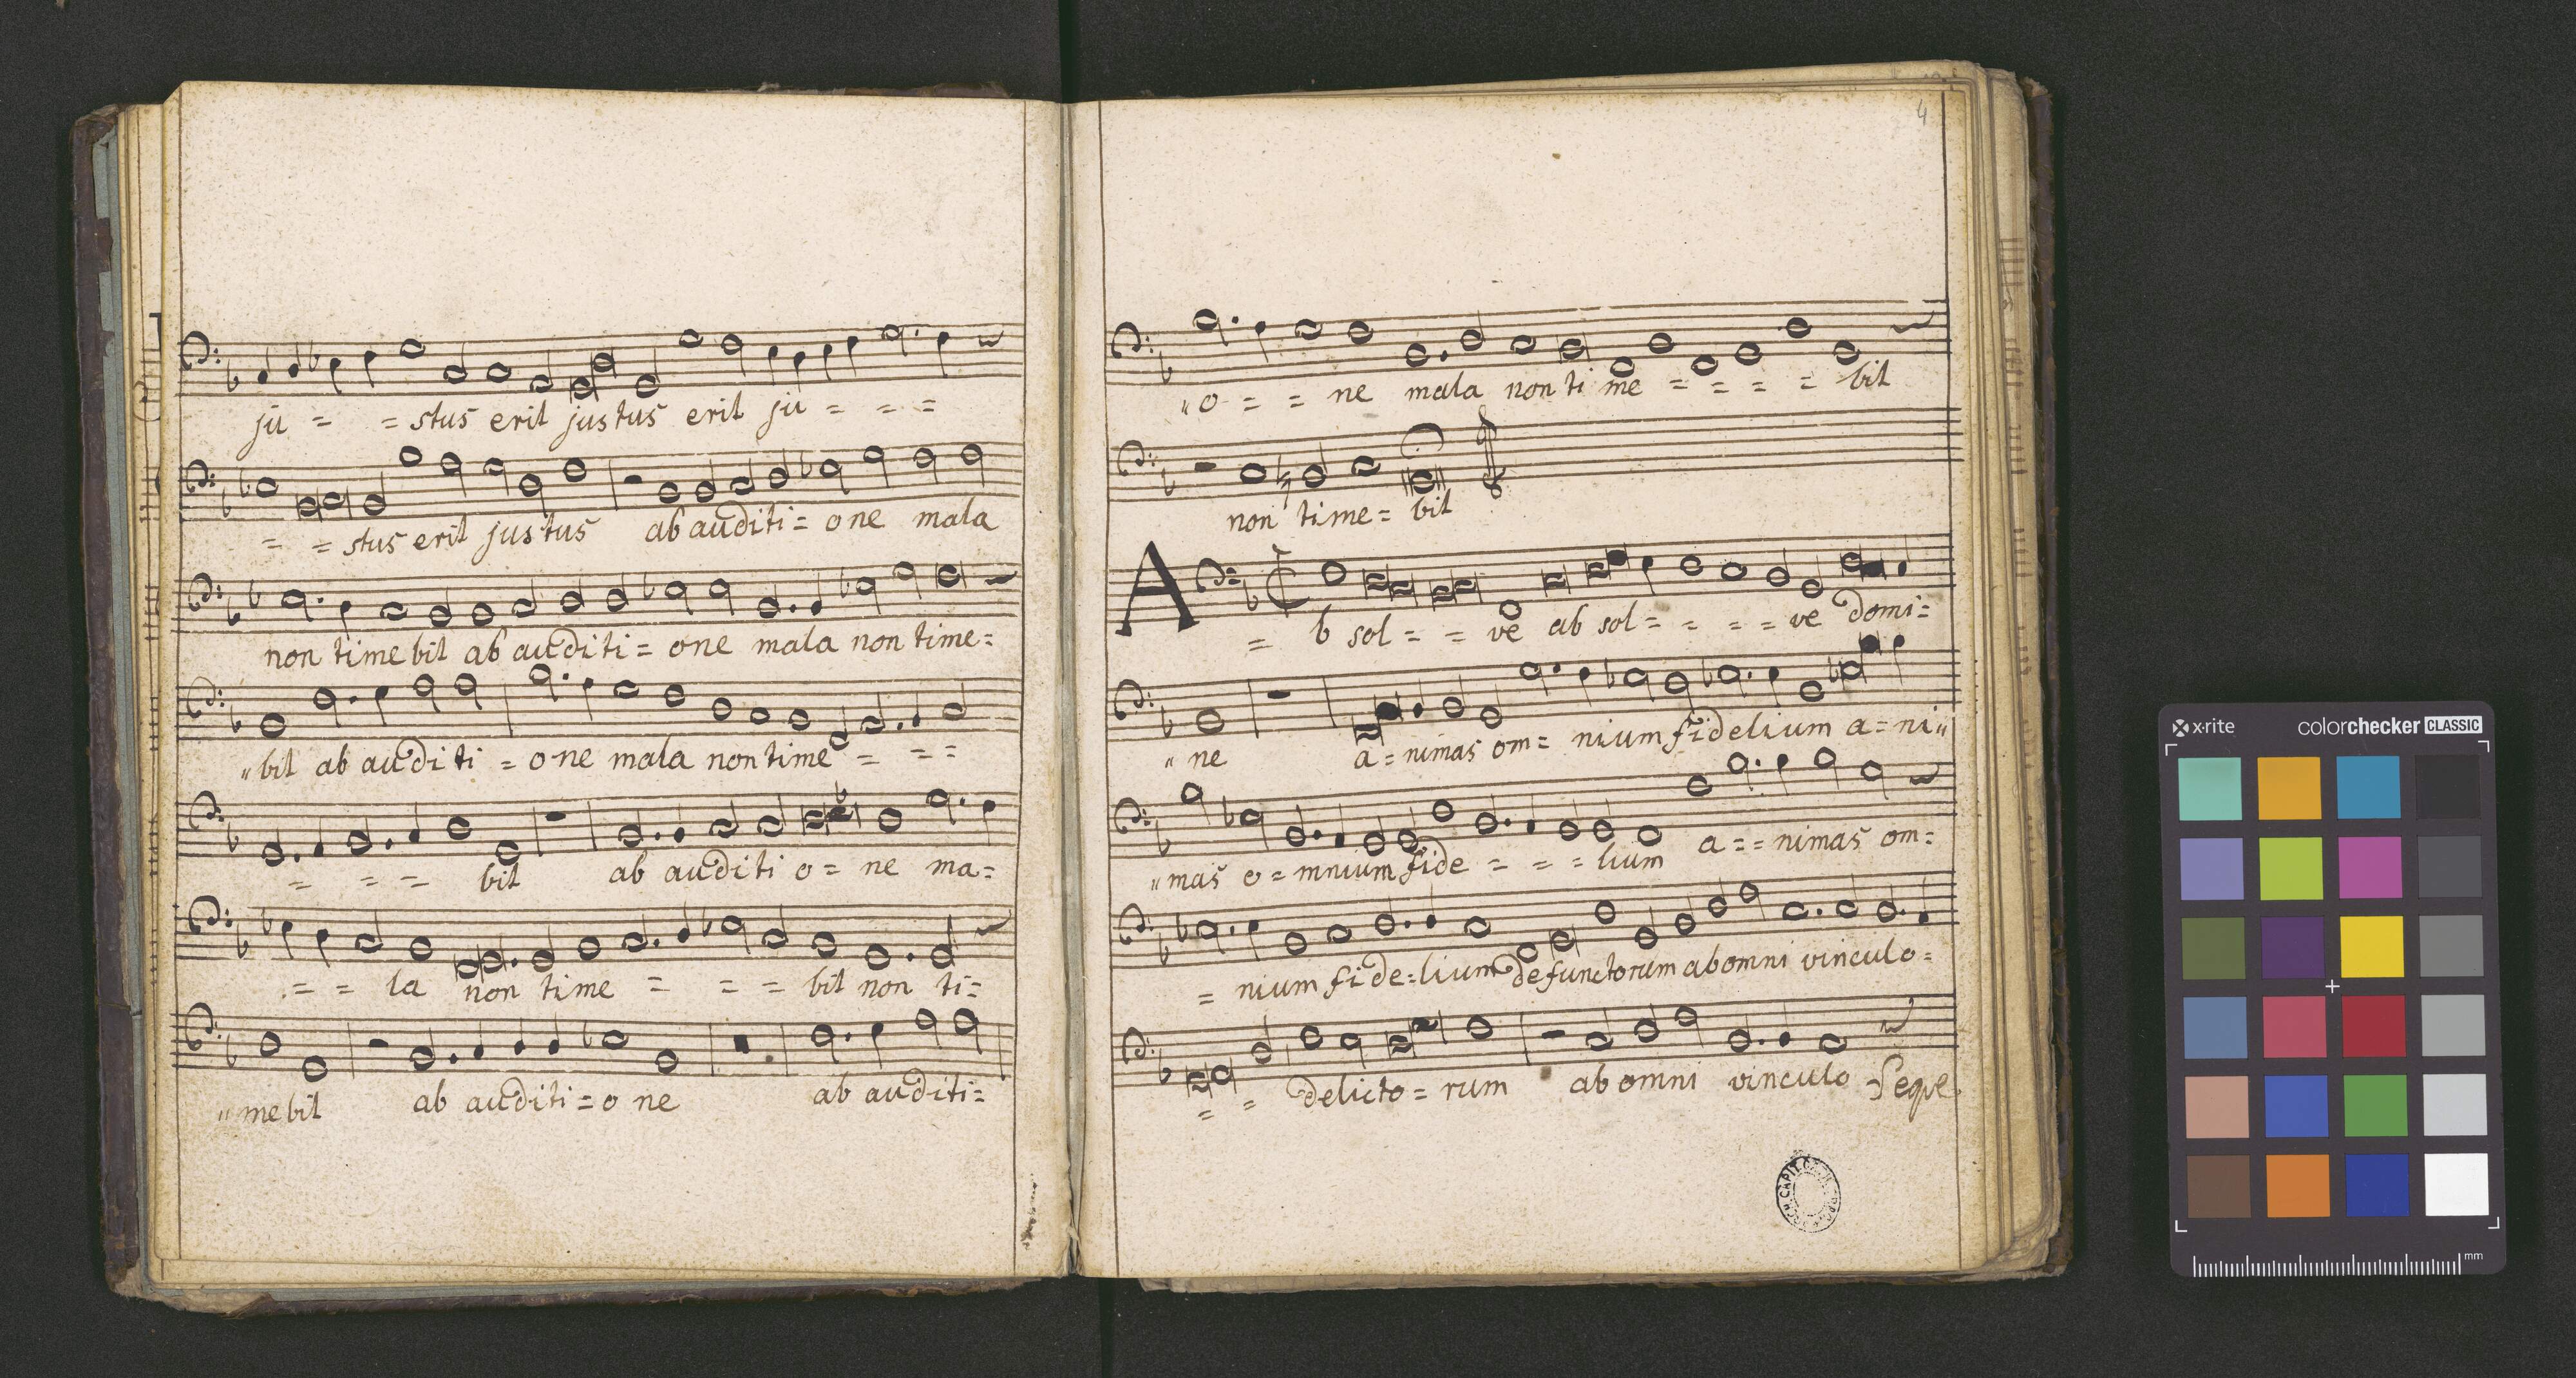 ju = = stus erit justus erit ju = = =
= = stus erit justus ab auditi = one mala
non timebit ab auditi = one mala non time =
"bit ab auditi = one mala non time = = =
= = = bit ab auditi o = ne ma =
= = la non time = = = bit non ti =
"mebit ab auditi = o ne ab auditi =
4
"o = = ne mala non ti me = = = = bit
non time = bit
A = b sol = = ve ab sol = = = = ve domi =
" ne a = nimas om = nium fidelium a = ni"
"mas o = mnium fide = = = lium a = = nimas om =
= nium fide = lium defunctorum ab omni vinculo =
= = delicto = rum ab omni vinculo Seque
x·rite
colorchecker CLASSIC
mm